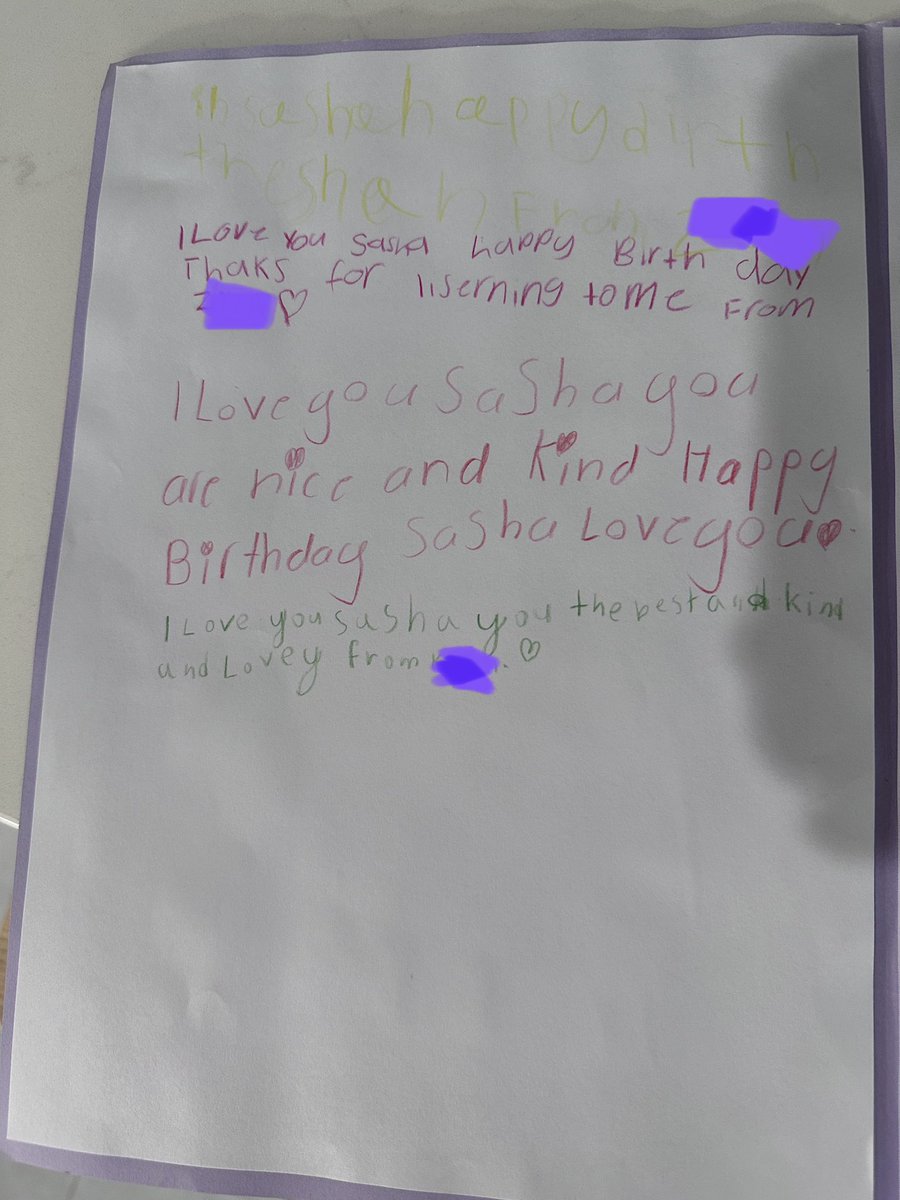 sasha happy dirth
From
I Love You Sasha happy Birth day
Thaks for liserning to me From
I Love you Sasha you
are nice and kind Happy
Birthday Sasha Love you
I Love you sasha you the best and kind
and Lovey from